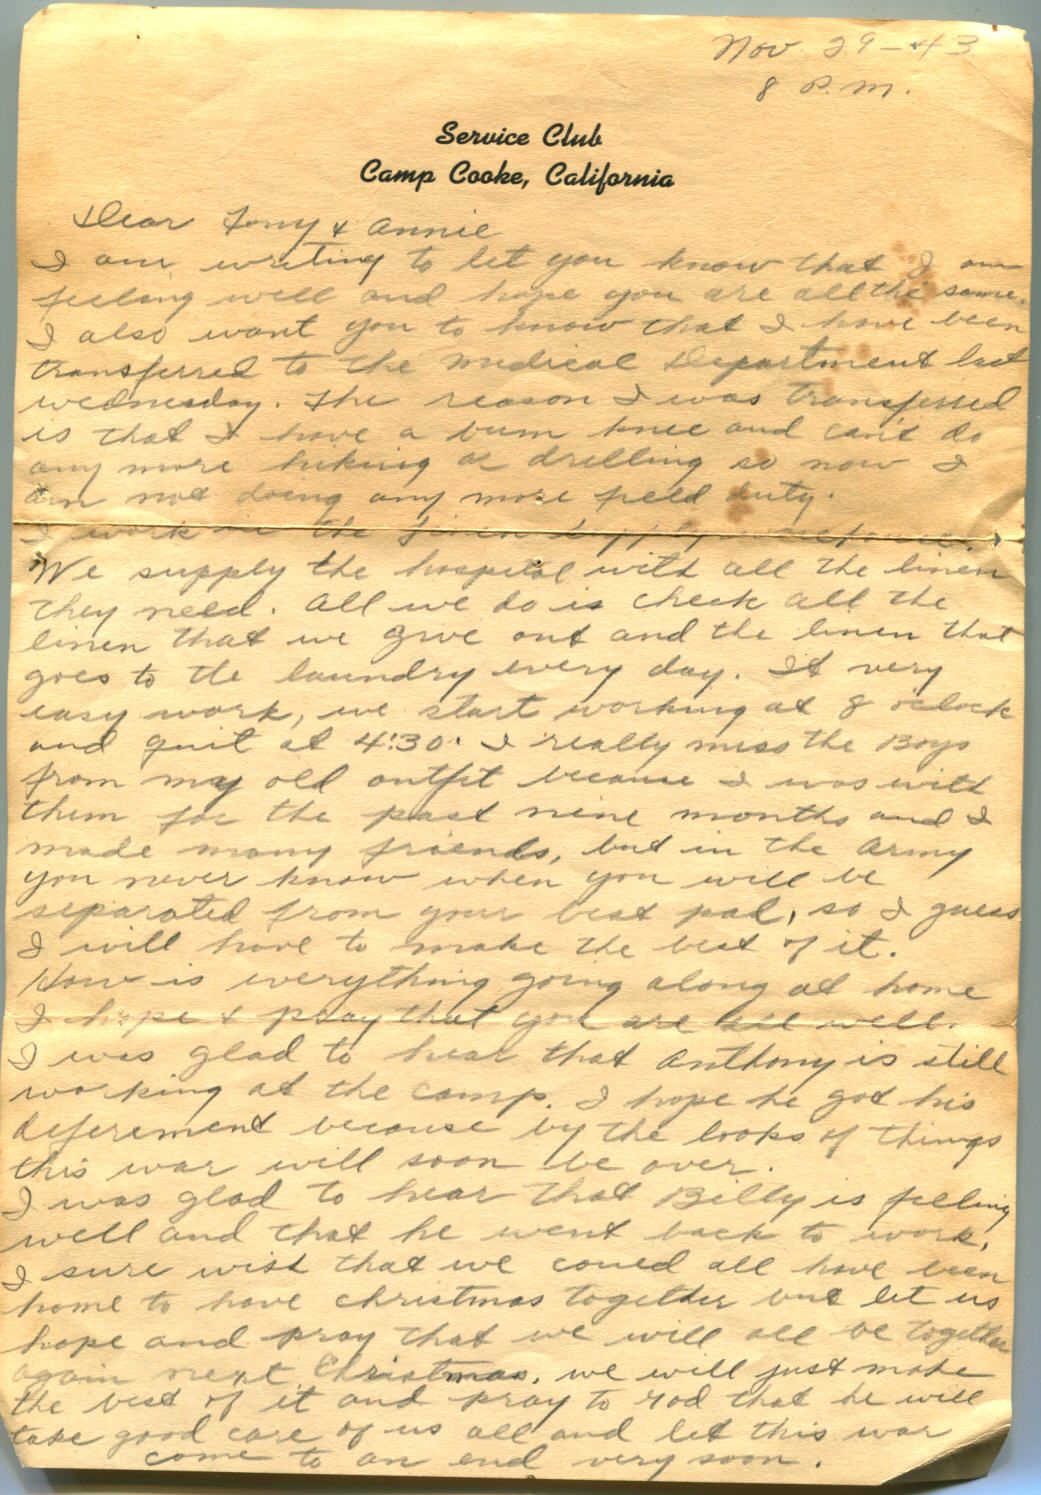 Nov. 29-43
8 P.M.
Service Club
Camp Cooke, California
Dear Tony & Annie
I am writing to let you know that I am
feeling well and hope you are all the same.
I also want you to know that I have been
transferred to the Medical Department last
wednesday. The reason I was transferred
is that I have a bum knee and can't do
any more hiking or drilling so now I
am not doing any more field duty.
I work in the linen supply
We supply the hospital with all the linen
they need. All we do is check all the
linen that we give out and the linen that
goes to the laundry every day. It very
easy work, we start working at 8 oclock
and quit at 4:30. I really miss the Boys
from my old outfit because I was with
them for the past nine months and I
made many friends, but in the Army
you never know when you will be
separated from your best pal, so I guess
I will have to make the best of it.
How is everything going along at home
I hope & pray that you are all well.
I was glad to hear that Anthony is still
working at the camp. I hope he got his
deferement because by the looks of things
this war will soon be over.
I was glad to hear that Billy is feeling
well and that he went back to work.
I sure wish that we could all have been
home to have christmas together but let us
hope and pray that we will all be together
again next Christmas. we will just make
the best of it and pray to God that he will
take good care of us all and let this war
come to an end very soon.